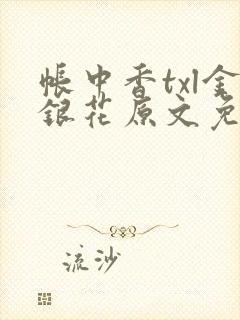 帐中香txl金
银花原文免
流沙